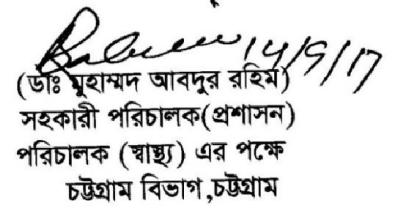 14/9/17
(ডাঃ মুহাম্মদ আবদুর রহিম)
সহকারী পরিচালক(প্রশাসন)
পরিচালক (স্বাস্থ্য) এর পক্ষে
চট্টগ্রাম বিভাগ,চট্টগ্রাম